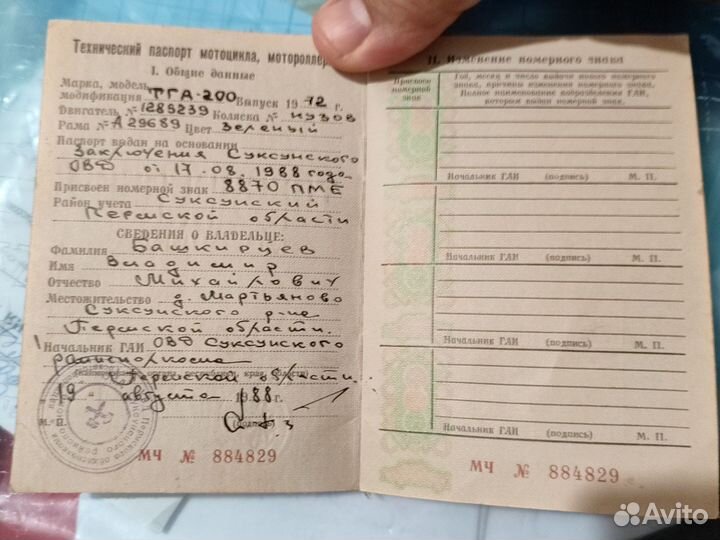 Технический паспорт мотоцикла, мотороллер
I. Общие данные
Марка, модель,
модификация ТГА-200 Выпуск 1972 г.
Двигатель № 1285239 Коляска № кузов
Рама № А29689 Цвет Зеленый
Паспорт выдан на основании
Заключения Суксунского
ОВД от 17.08.1988 года
Присвоен номерной знак 8870 ПМЕ
Район учета Суксунский
Пермской области
СВЕДЕНИЯ О ВЛАДЕЛЬЦЕ:
Фамилия Башкирцев
Имя Владимир
Отчество Михайлович
Местожительство д. Мартьяново
Суксунского р-на
Пермской области.
Начальник ГАИ ОВД Суксунского
райисполкома
Пермской области.
19 августа 1988 г.
М. П. (подпись)
МЧ № 884829
II. Изменение номерного знака
Присвоен номерной знак
Год, месяц и число выдачи нового номерного знака, причина изменения номерного знака. Полное наименование подразделения ГАИ, которым выдан номерной знак.
Начальник ГАИ (подпись) М. П.
Начальник ГАИ (подпись) М. П.
Начальник ГАИ (подпись) М. П.
Начальник ГАИ (подпись) М. П.
МЧ № 884829
Avito